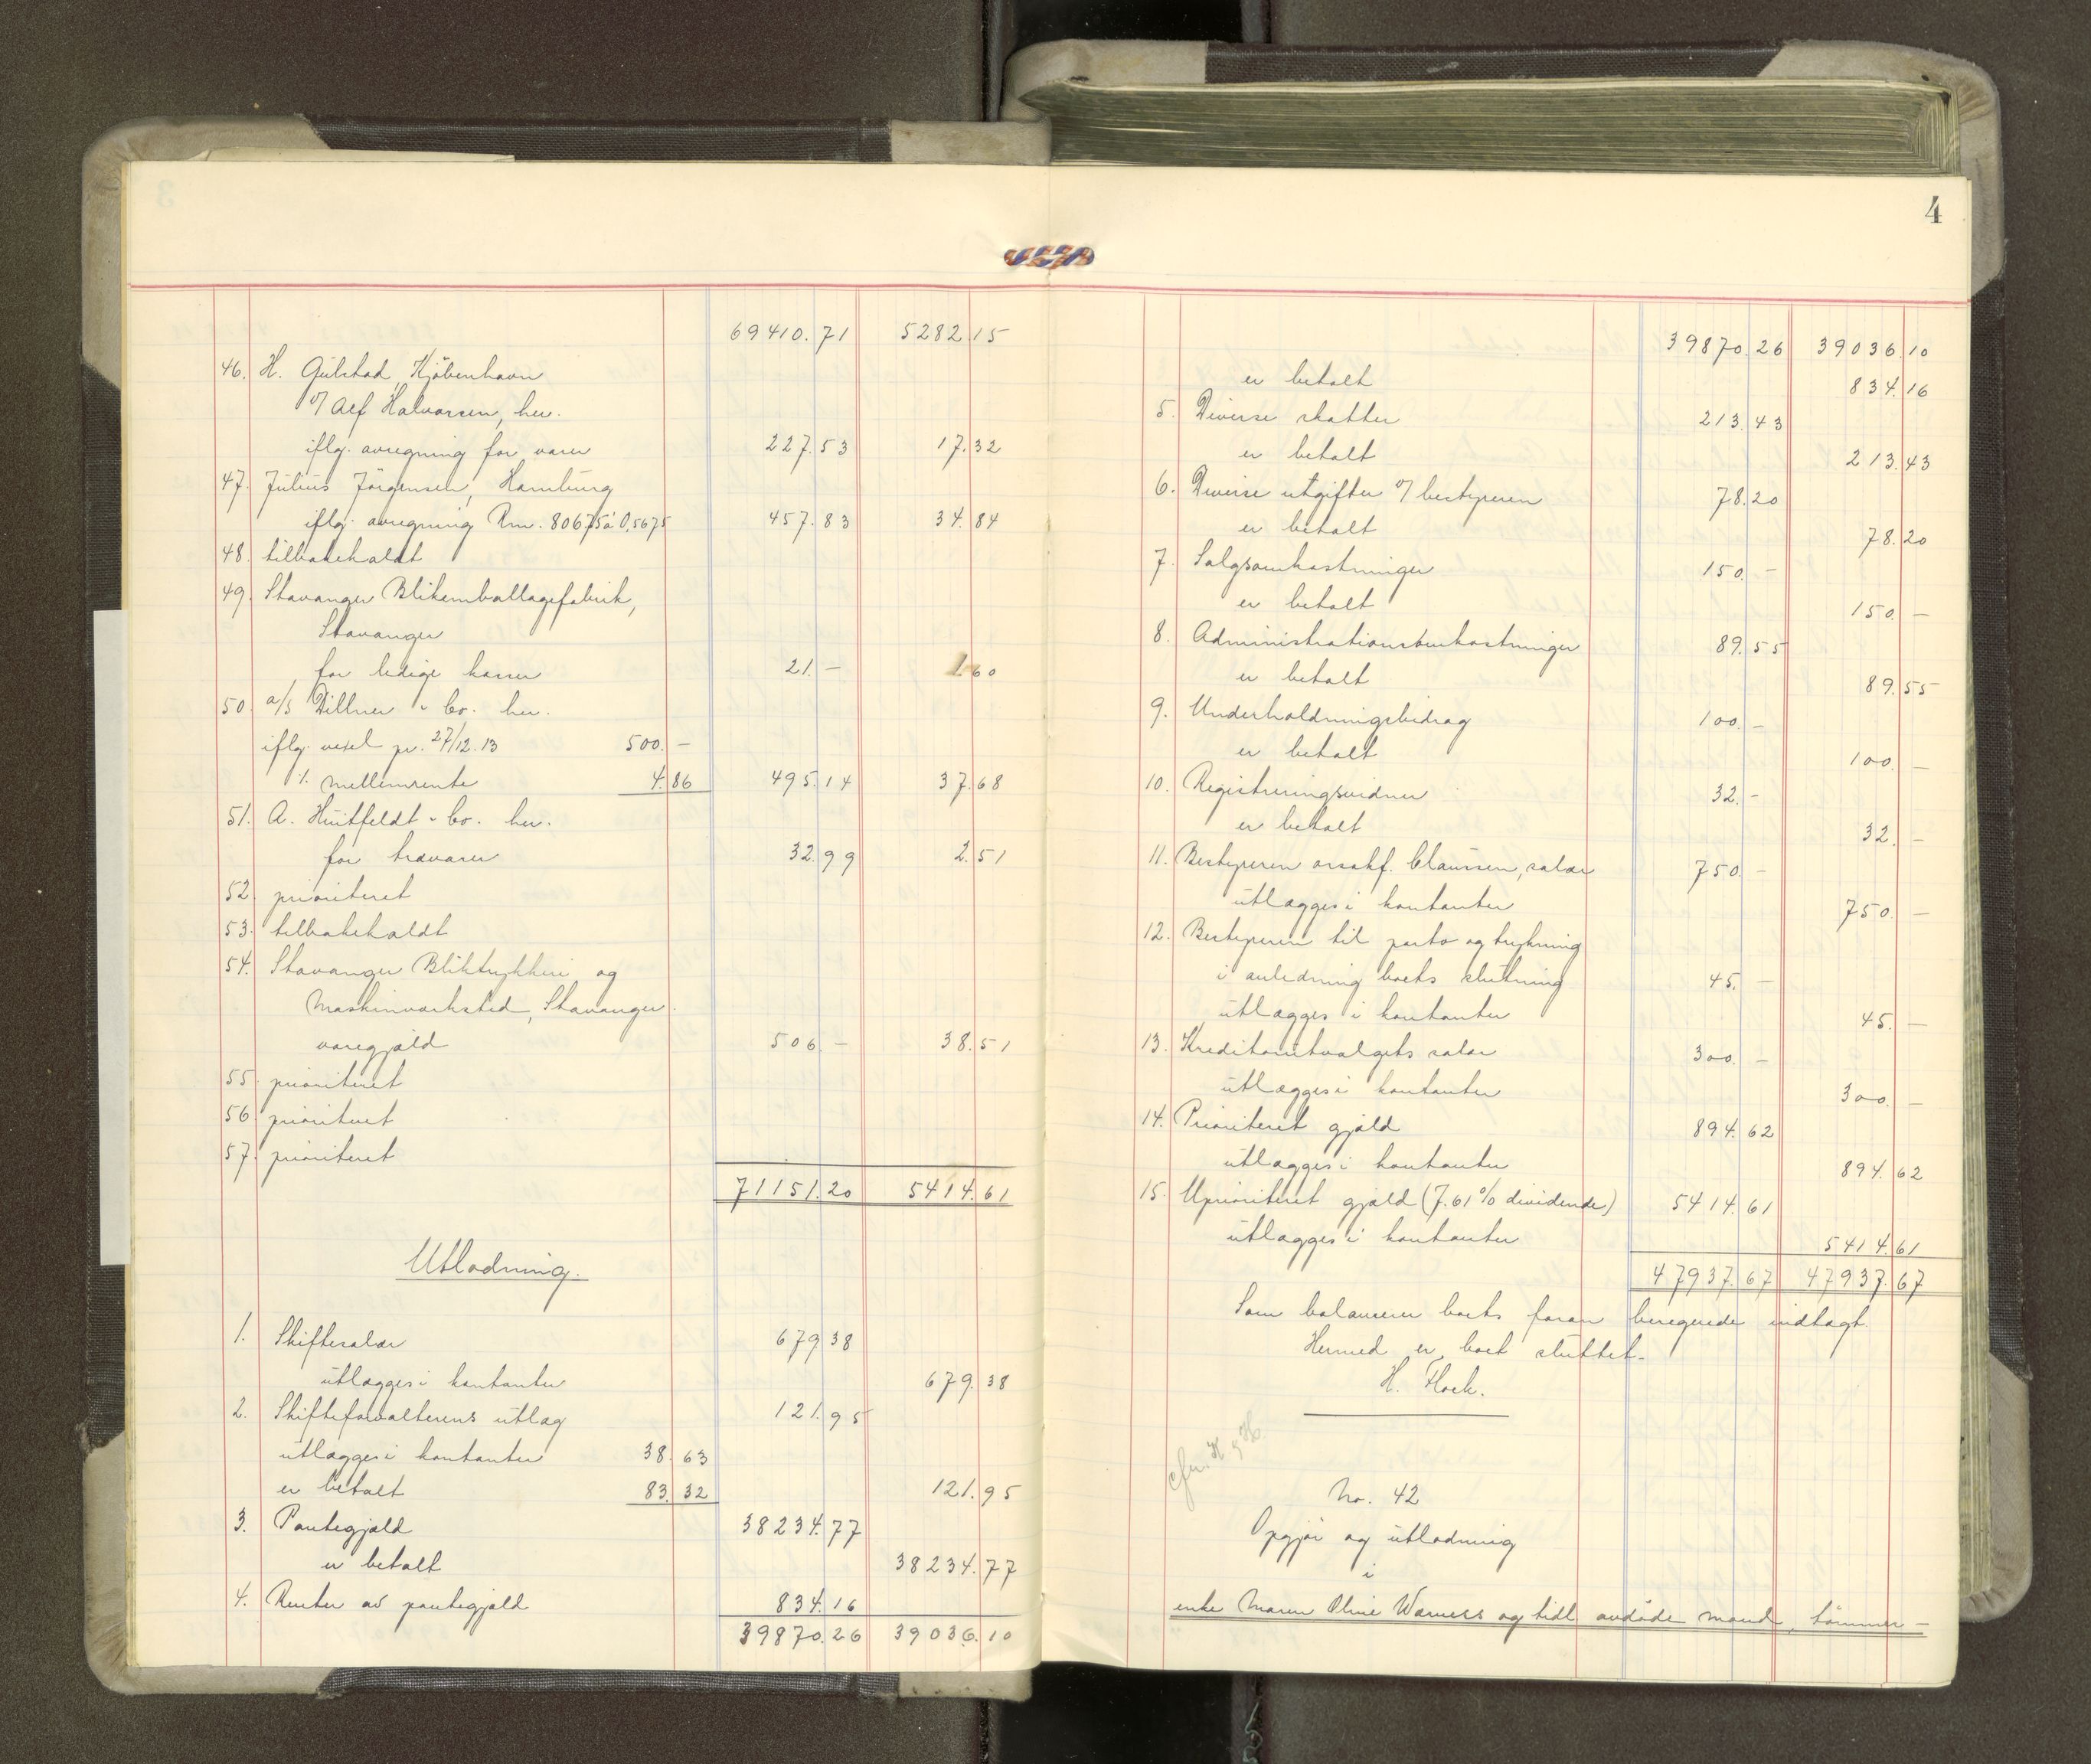 69410.71 5282.15
46. H. Gulstad, Kjöbenhavn
v/ Alf Halvorsen, her.
iflg. avregning for varer 227.53 17.32
47. Julius Jörgensen, Hamburg
iflg. avregning Rm. 806.75 à 0,5675 457.83 34.84
48. tilbakekaldt
49. Stavanger Blikemballagefabrik,
Stavanger
for ledige kasser 21.- 1.60
50. a/s Dillner & Co. her.
iflg. vexel pr. 27/12.13 500.-
% mellemrente 4.86 495.14 37.68
51. A. Huitfeldt & Co. her.
for trævarer 32.99 2.51
52. prioriteret
53. tilbakekaldt
54. Stavanger Bliktrykkeri og
Maskinverksted, Stavanger.
varegjæld 506.- 38.51
55. prioriteret
56. prioriteret
57. prioriteret
71151.20 5414.61
Utlodning.
1. Skiftesalær 679.38
utlægges i kontanter 679.38
2. Skifteforvalterens utlæg 121.95
utlægges i kontanter 38.63
er betalt 83.32 121.95
3. Pantegjæld 38234.77
er betalt 38234.77
4. Renter av pantegjæld 834.16
39870.26 39036.10
4
39870.26 39036.10
er betalt 834.16
5. Diverse skatter 213.43
er betalt 213.43
6. Diverse utgifter v/ bestyreren 78.20
er betalt 78.20
7. Salgsomkostninger 150.-
er betalt 150.-
8. Administrationsomkostninger 89.55
er betalt 89.55
9. Underholdningsbidrag 100.-
er betalt 100.-
10. Registreringsvidner 32.-
er betalt 32.-
11. Bestyreren o.r.sakf. Claussen, salær 750.-
utlægges i kontanter 750.-
12. Bestyreren til porto og trykning
i anledning boets slutning 45.-
utlægges i kontanter 45.-
13. Kreditorutvalgets salær 300.-
utlægges i kontanter 300.-
14. Prioriteret gjæld 894.62
utlægges i kontanter 894.62
15. Uprioriteret gjæld (7.61% dividende) 5414.61
utlægges i kontanter 5414.61
47937.67 47937.67
Som balanserer boets foran beregnede indtægt.
Hermed er boet sluttet.
H. Floch.
cfr.
No. 42
Opgjör og utlodning
i
enke Maren Oline Warness og tidl. avdöde mand, tömmer-